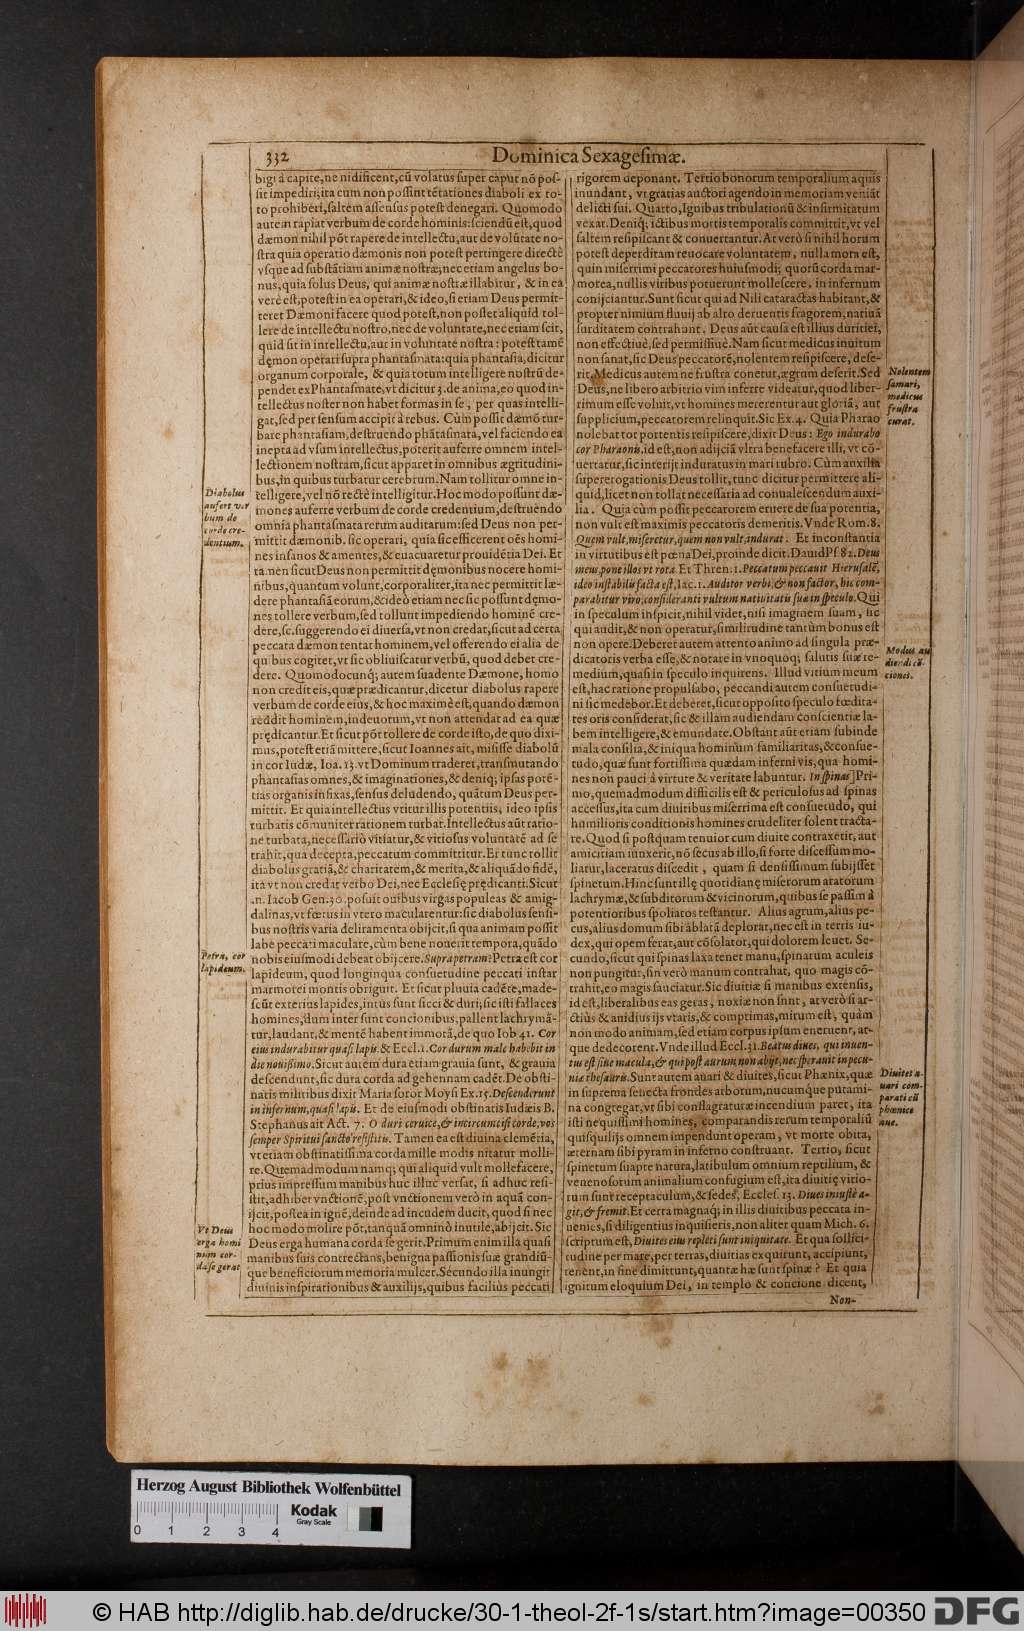 332
Dominica Sexagesimæ.
bigi à capite, ne nidificent, cū volatus super caput nō pos-
sit impediri; ita cum non possint tētationes diaboli ex to-
to prohiberi, saltem assensus potest denegari. Quomodo
autem rapiat verbum de corde hominis: sciendū est, quod
dæmon nihil pōt rapere de intellectu, aut de volūtate no-
stra quia operatio dæmonis non potest pertingere directè
vsque ad substātiam animæ nostræ; nec etiam angelus bo-
nus, quia solus Deus, qui animæ nostræ illabitur, & in ea
verè est, potest in ea operari, & ideo, si etiam Deus permit-
teret Dæmoni facere quod potest, non posset aliquid tol-
lere de intellectu nostro, nec de voluntate, nec etiam scit,
quid sit in intellectu, aut in voluntate nostra: potest tamē
dęmon operari supra phantasmata: quia phantasia, dicitur
organum corporale, & quia totum intelligere nostrū de-
pendet ex Phantasmate, vt dicitur 3. de anima, eo quod in-
tellectus noster non habet formas in se, per quas intelli-
gat, sed per sensum accipit à rebus. Cùm possit dæmō tur-
bare phantasiam, destruendo phātasmata, vel faciendo ea
inepta ad vsum intellectus, poterit auferre omnem intel-
lectionem nostram, sicut apparet in omnibus ægritudini-
bus, in quibus turbatur cerebrum. Nam tollitur omne in-
telligere, vel nō rectè intelligitur. Hoc modo possunt dæ-
mones auferre verbum de corde credentium, destruēdo
omnia phantasmata rerum auditarum: sed Deus non per-
mittit dæmonib. sic operari, quia sic efficerent oēs homi-
nes insanos & amentes, & euacuaretur prouidētia Dei. Et
tamen sicut Deus non permittit dęmonibus nocere homi-
nibus, quantum volunt, corporaliter, ita nec permittit læ-
dere phantasiā eorum, & ideò etiam nec sic possunt dęmo-
nes tollere verbum, sed tollunt impediendo hominē cre-
dere, sc. suggerendo ei diuersa, vt non credat, sicut ad certa
peccata dæmon tentat hominem, vel offerendo ei alia de
quibus cogitet, vt sic obliuiscatur verbū, quod debet cre-
dere. Quomodocunq; autem suadente Dæmone, homo
non credit eis, quæ prædicantur, dicetur diabolus rapere
verbum de corde eius, & hoc maximè est, quando dæmon
reddit hominem, indeuotum, vt non attendat ad ea quæ
prędicantur. Et sicut pōt tollere de corde isto, de quo dixi-
mus, potest etiā mittere, sicut Ioannes ait, misisse diabolū
in cor Iudæ, Ioa. 13. vt Dominum traderet, transmutando
phantasias omnes, & imaginationes, & deniq; ipsas potē-
tias organis infixas, sensus deludendo, quātum Deus per-
mittit. Et quia intellectus vtitur illis potentiis, ideo ipsis
turbatis cōmuniter rationem turbat. Intellectus aūt ratio-
ne turbata, necessariò vitiatur, & vitiosus voluntatē ad se
trahit, qua decepta, peccatum committitur. Et tunc tollit
diabolus gratiā, & charitatem, & merita, & aliquādo fidē,
ita vt non credat verbo Dei, nec Ecclesię prędicanti. Sicut
.n. Iacob Gen. 30. posuit ouibus virgas populeas & amig-
dalinas, vt fœtus in vtero macularentur: sic diabolus sensi-
bus nostris varia deliramenta obijcit, si qua animam possit
labe peccati maculare, cùm bene nouerit tempora, quādo
nobis eiusmodi debeat obijcere. Supra petram: Petra est cor
lapideum, quod longinqua consuetudine peccati instar
marmorei montis obriguit. Et sicut pluuia cadēte, made-
scūt exterius lapides, intus sunt sicci & duri; sic isti fallaces
homines, dum inter sunt concionibus, pallent lachrymā-
tur, laudant, & mentē habent immotā, de quo Iob 41. Cor
eius indurabitur quasi lapis. & Eccl. 1. Cor durum male habebit in
die nouissimo. Sicut autem dura etiam grauia sunt, & grauia
descendunt, sic dura corda ad gehennam cadēt. De obsti-
natis militibus dixit Maria soror Moysi Ex. 15. Descenderunt
in infernum, quasi lapis. Et de eiusmodi obstinatis Iudæis B.
Stephanus ait Act. 7. O duri ceruice, & incircumcisi corde, vos
semper Spiritui sancto resistitis. Tamen ea est diuina clemētia,
vt etiam obstinatissima corda mille modis nitatur molli-
re. Quemadmodum namq; qui aliquid vult mollefacere,
prius impressum manibus huc illuc versat, si adhuc resi-
stit, adhibet vnctionē, post vnctionem verò in aquā con-
ijcit, postea in ignē, deinde ad incudem ducit, quod si nec
hoc modo molire pōt, tanquā omninò inutile, abijcit. Sic
Deus erga humana corda se gerit. Primum enim illa quasi
manibus suis contrectans, benigna passionis suæ grandiū-
que beneficiorum memoria mulcet. Secundo illa inungit
diuinis inspirationibus & auxilijs, quibus facilius peccati
Diabolus
aufert ver
bum de
corde cre-
dentium.
Petra, cor
lapideum.
Vt Deus
erga homi
num cor-
da se gerat
rigorem deponant. Tertio bonorum temporalium aquis
inundant, vt gratias auctori agendo in memoriam veniāt
delicti sui. Quarto, Ignibus tribulationū & infirmitatum
vexat. Deniq; ictibus mortis temporalis committit, vt vel
saltem resipiscant & conuertantur. At verò si nihil horum
potest deperditam reuocare voluntatem, nulla mora est,
quin miserrimi peccatores huiusmodi; quorū corda mar-
morea, nullis viribus potuerunt mollescere, in infernum
conijciantur. Sunt sicut qui ad Nili cataractas habitant, &
propter nimium fluuij ab alto deruentis fragorem, natiuā
surditatem contrahunt, Deus aūt causa est illius duritiei,
non effectiuè, sed permissiuè. Nam sicut medicus inuitum
non sanat, sic Deus peccatorē, nolentem resipiscere, dese-
rit. Medicus autem ne frustra conetur, ægrum deserit. Sed
Deus, ne libero arbitrio vim inferre videatur, quod liber-
rimum esse voluit, vt homines mererentur aut gloriā, aut
supplicium, peccatorem relinquit. Sic Ex. 4. Quia Pharao
nolebat tot portentis resipiscere, dixit Deus: Ego indurabo
cor Pharaonis, id est, non adijciā vltra benefacere illi, vt cō-
uertatur, sic interijt induratus in mari rubro. Cùm auxilia
supererogationis Deus tollit, tunc dicitur permittere ali-
quid, licet non tollat necessaria ad conualescendum auxi-
lia. Quia cùm possit peccatorem eruere de sua potentia,
non vult est maximis peccatoris demeritis. Vnde Rom. 8.
Quem vult, miseretur, quem non vult, indurat. Et inconstantia
in virtutibus est pœna Dei, proinde dicit. Dauid Ps. 82. Deus
meus, pone illos vt rotā. Et Thren. 1. Peccatum peccauit Hierusalē,
ideo instabilis facta est, Iac. 1. Auditor verbi, & non factor, hic com-
parabitur viro, consideranti vultum natiuitatis suæ in speculo. Qui
in speculum inspicit, nihil videt, nisi imaginem suam, sic
qui audit, & non operatur, similitudine tantùm bonus est
non opere. Deberet autem attento animo ad singula præ-
dicatoris verba esse, & notare in vnoquoq; salutis suæ re-
medium, quasi in speculo inquirens. Illud vitium meum
est, hac ratione propulsabo, peccandi autem consuetudi-
ni sic medebor. Et deberet, sicut opposito speculo fœdita-
tes oris considerat, sic & illam audiendam conscientiæ la-
bem intelligere, & emundate. Obstant aūt etiam subinde
mala consilia, & iniqua hominum familiaritas, & consue-
tudo, quæ sunt fortissima quædam inferni vis, qua homi-
nes non pauci à virtute & veritate labuntur. In spinas] Pri-
mo, quemadmodum difficilis est & periculosus ad spinas
accessus, ita cum diuitibus miserrima est consuetudo, qui
humilioris conditionis homines crudeliter solent tracta-
re. Quod si postquam tenuior cum diuite contraxerit, aut
amicitiam iunxerit, nō secus ab illo, si forte discessum mo-
liatur, laceratus discedit, quam si densissimum subijsset
spinetum. Hinc sunt illę quotidianę miserorum aratorum
lachrymæ, & subditorum & vicinorum, quibus se passim à
potentioribus spoliatos testantur. Alius agrum, alius pe-
cus, alius domum sibi ablatā deplorat, nec est in terris iu-
dex, qui opem ferat, aut cōsolator, qui dolorem leuet. Se-
cundo, sicut qui spinas laxa tenet manu, spinarum aculeis
non pungitur, sin verò manum contrahat, quo magis cō-
trahit, eo magis sauciatur. Sic diuitiæ si manibus extensis,
id est, liberalibus eas geras, noxiæ non sunt, at verò si ar-
ctiùs & auidius ijs vtaris, & comptimas, mirum est, quàm
non modo animam, sed etiam corpus ipsum eneruent, at-
que dedecorent. Vnde illud Eccl. 31. Beatus diues, qui inuen-
tus est sine macula, & qui post aurum non abijt, nec sperauit in pecu-
niæ thesauris. Sunt autem auari & diuites, sicut Phœnix, quæ
in suprema senecta frondes arborum, nucumque putami-
na congregat, vt sibi conflagraturæ incendium paret, ita
isti nequissimi homines, comparandis rerum temporaliū
quisquilijs omnem impendunt operam, vt morte obita,
æternam sibi pyram in inferno construant. Tertio, sicut
spinetum suapte natura, latibulum omnium reptilium, &
venenosorum animalium confugium est, ita diuitię vitio-
rum sunt receptaculum, & sedes, Eccles. 13. Diues iniustè a-
git, & fremit. Et certa magnaq; in illis diuitibus peccata in-
uenies, si diligentius inquisieris, non aliter quam Mich. 6.
scriptum est, Diuites eius repleti sunt iniquitate. Et qua sollici-
tudine per mare, per terras, diuitias exquirunt, accipiunt,
tenent, in fine dimittunt, quantæ hæ sunt spinæ? Et quia
ignitum eloquium Dei, in templo & concione dicent,
Non-
Nolentem
sanari,
medicus
frustra
curat.
Modus au
diendi cō-
ciones.
Diuites a-
uari com-
parati cū
phœnice
aue.
Herzog August Bibliothek Wolfenbüttel
0 1 2 3 4
Kodak
Gray Scale
© HAB http://diglib.hab.de/drucke/30-1-theol-2f-1s/start.htm?image=00350
DFG